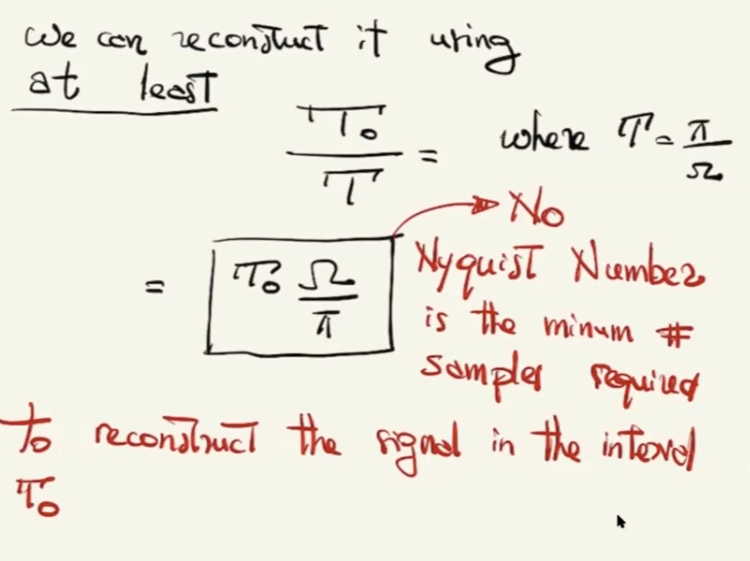 We can reconstruct it using
at least
T₀/T = where T = π/Ω
= T₀ Ω/π → N₀
Nyquist Number
is the minum #
samples required
to reconstruct the signal in the interval
T₀